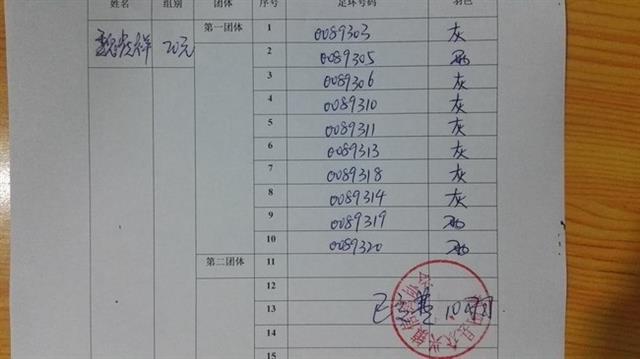 姓名 组别 团体 序号 足环号码 羽色
20元 第一团体 1 0089303 灰
2 0089305
3 0089306 灰
4 0089310 灰
5 0089311 灰
6 0089313 灰
7 0089318 灰
8 0089314 灰
9 0089319
10 0089320
第二团体 11
12
13
14
15